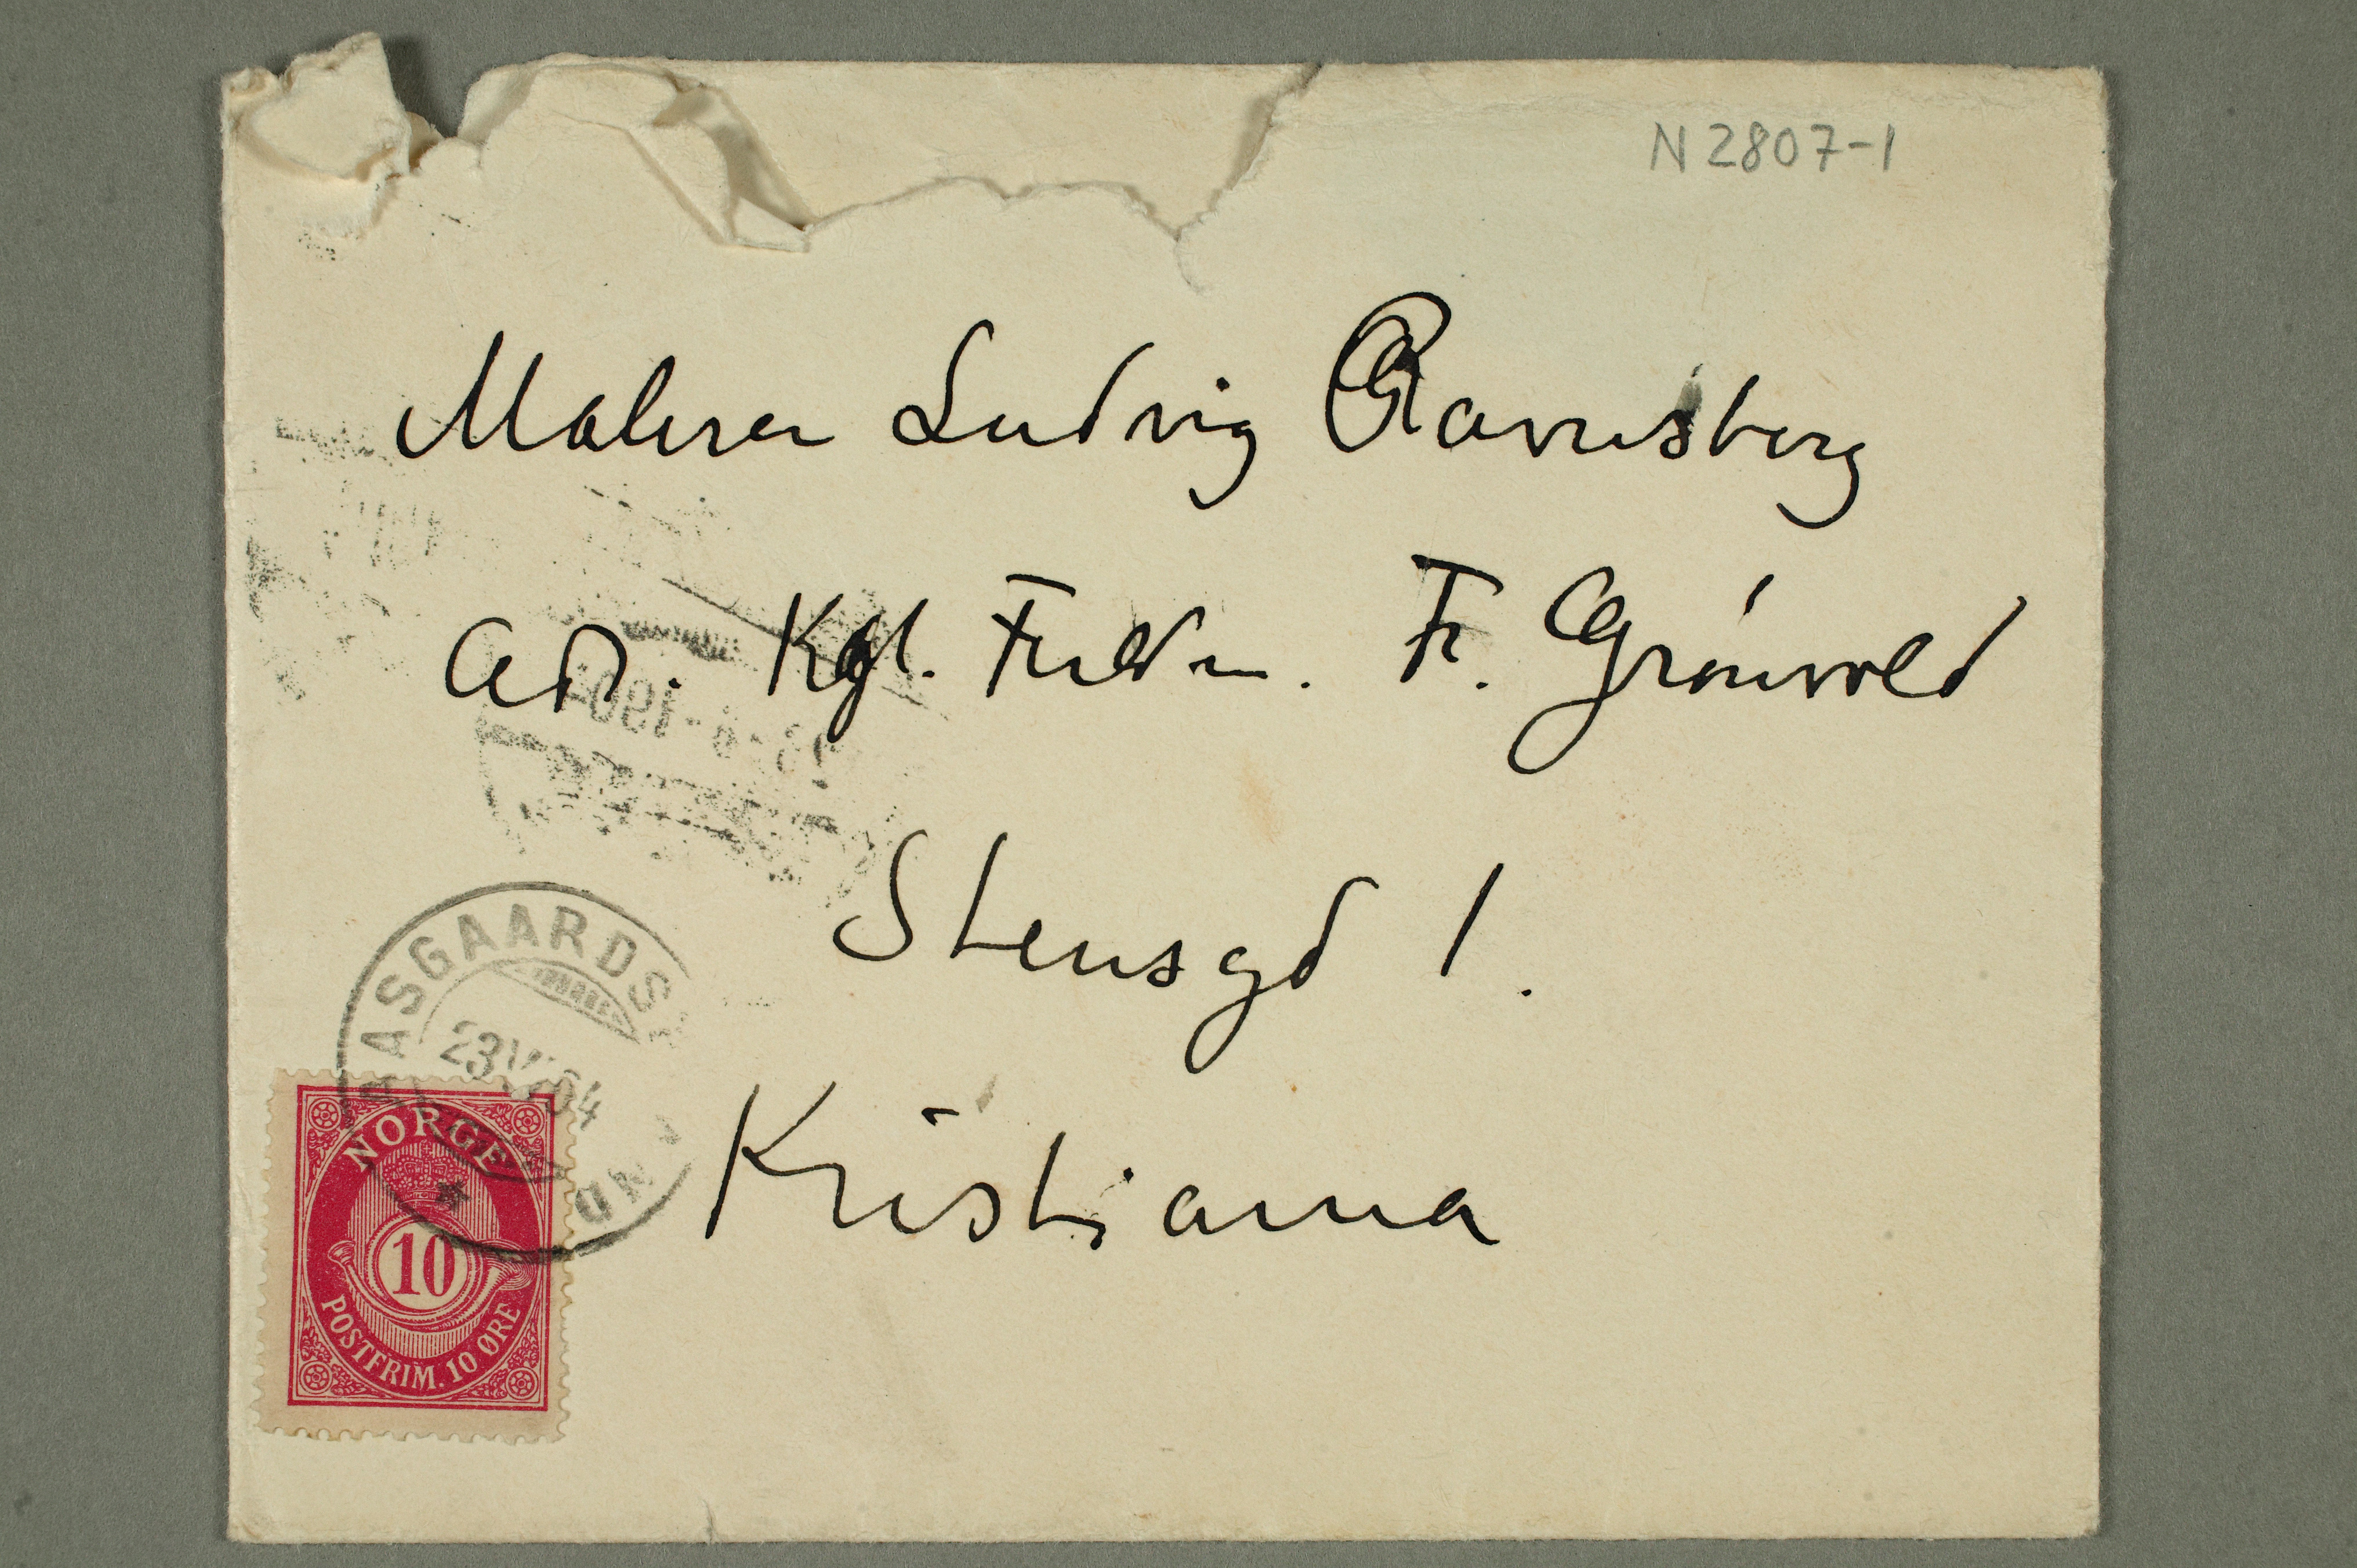 N 2807-1
Maleren Ludvig Ravensberg
Ad. Kgl. Fuldm. Fr. Grönvold
Stensgd 1.
Kristiania
AASGAARDS
23 VI 04
NORGE
10
POSTFRIM. 10 ØRE